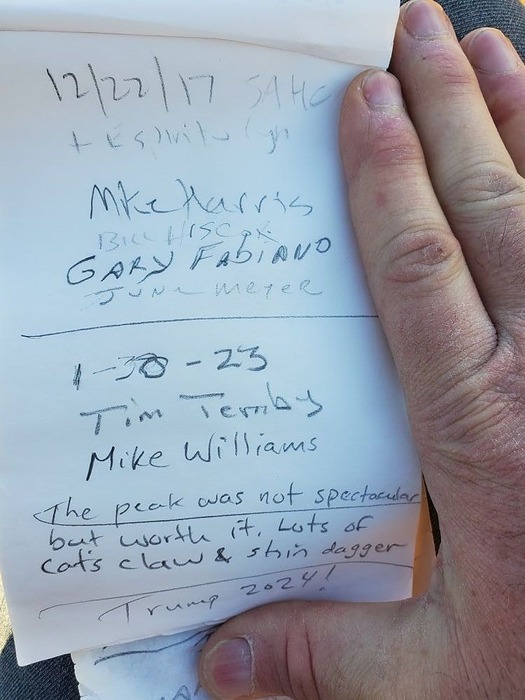 12/22/17 SAHC
+ Espiritu
Mike Harris
Bill HISCOX
GARY FABIANO
JUNE MEYER
1-30-23
Tim
Mike Williams
The peak was not spectacular
but worth it. Lots of
cat's claw & shin dagger
Trump 2024!